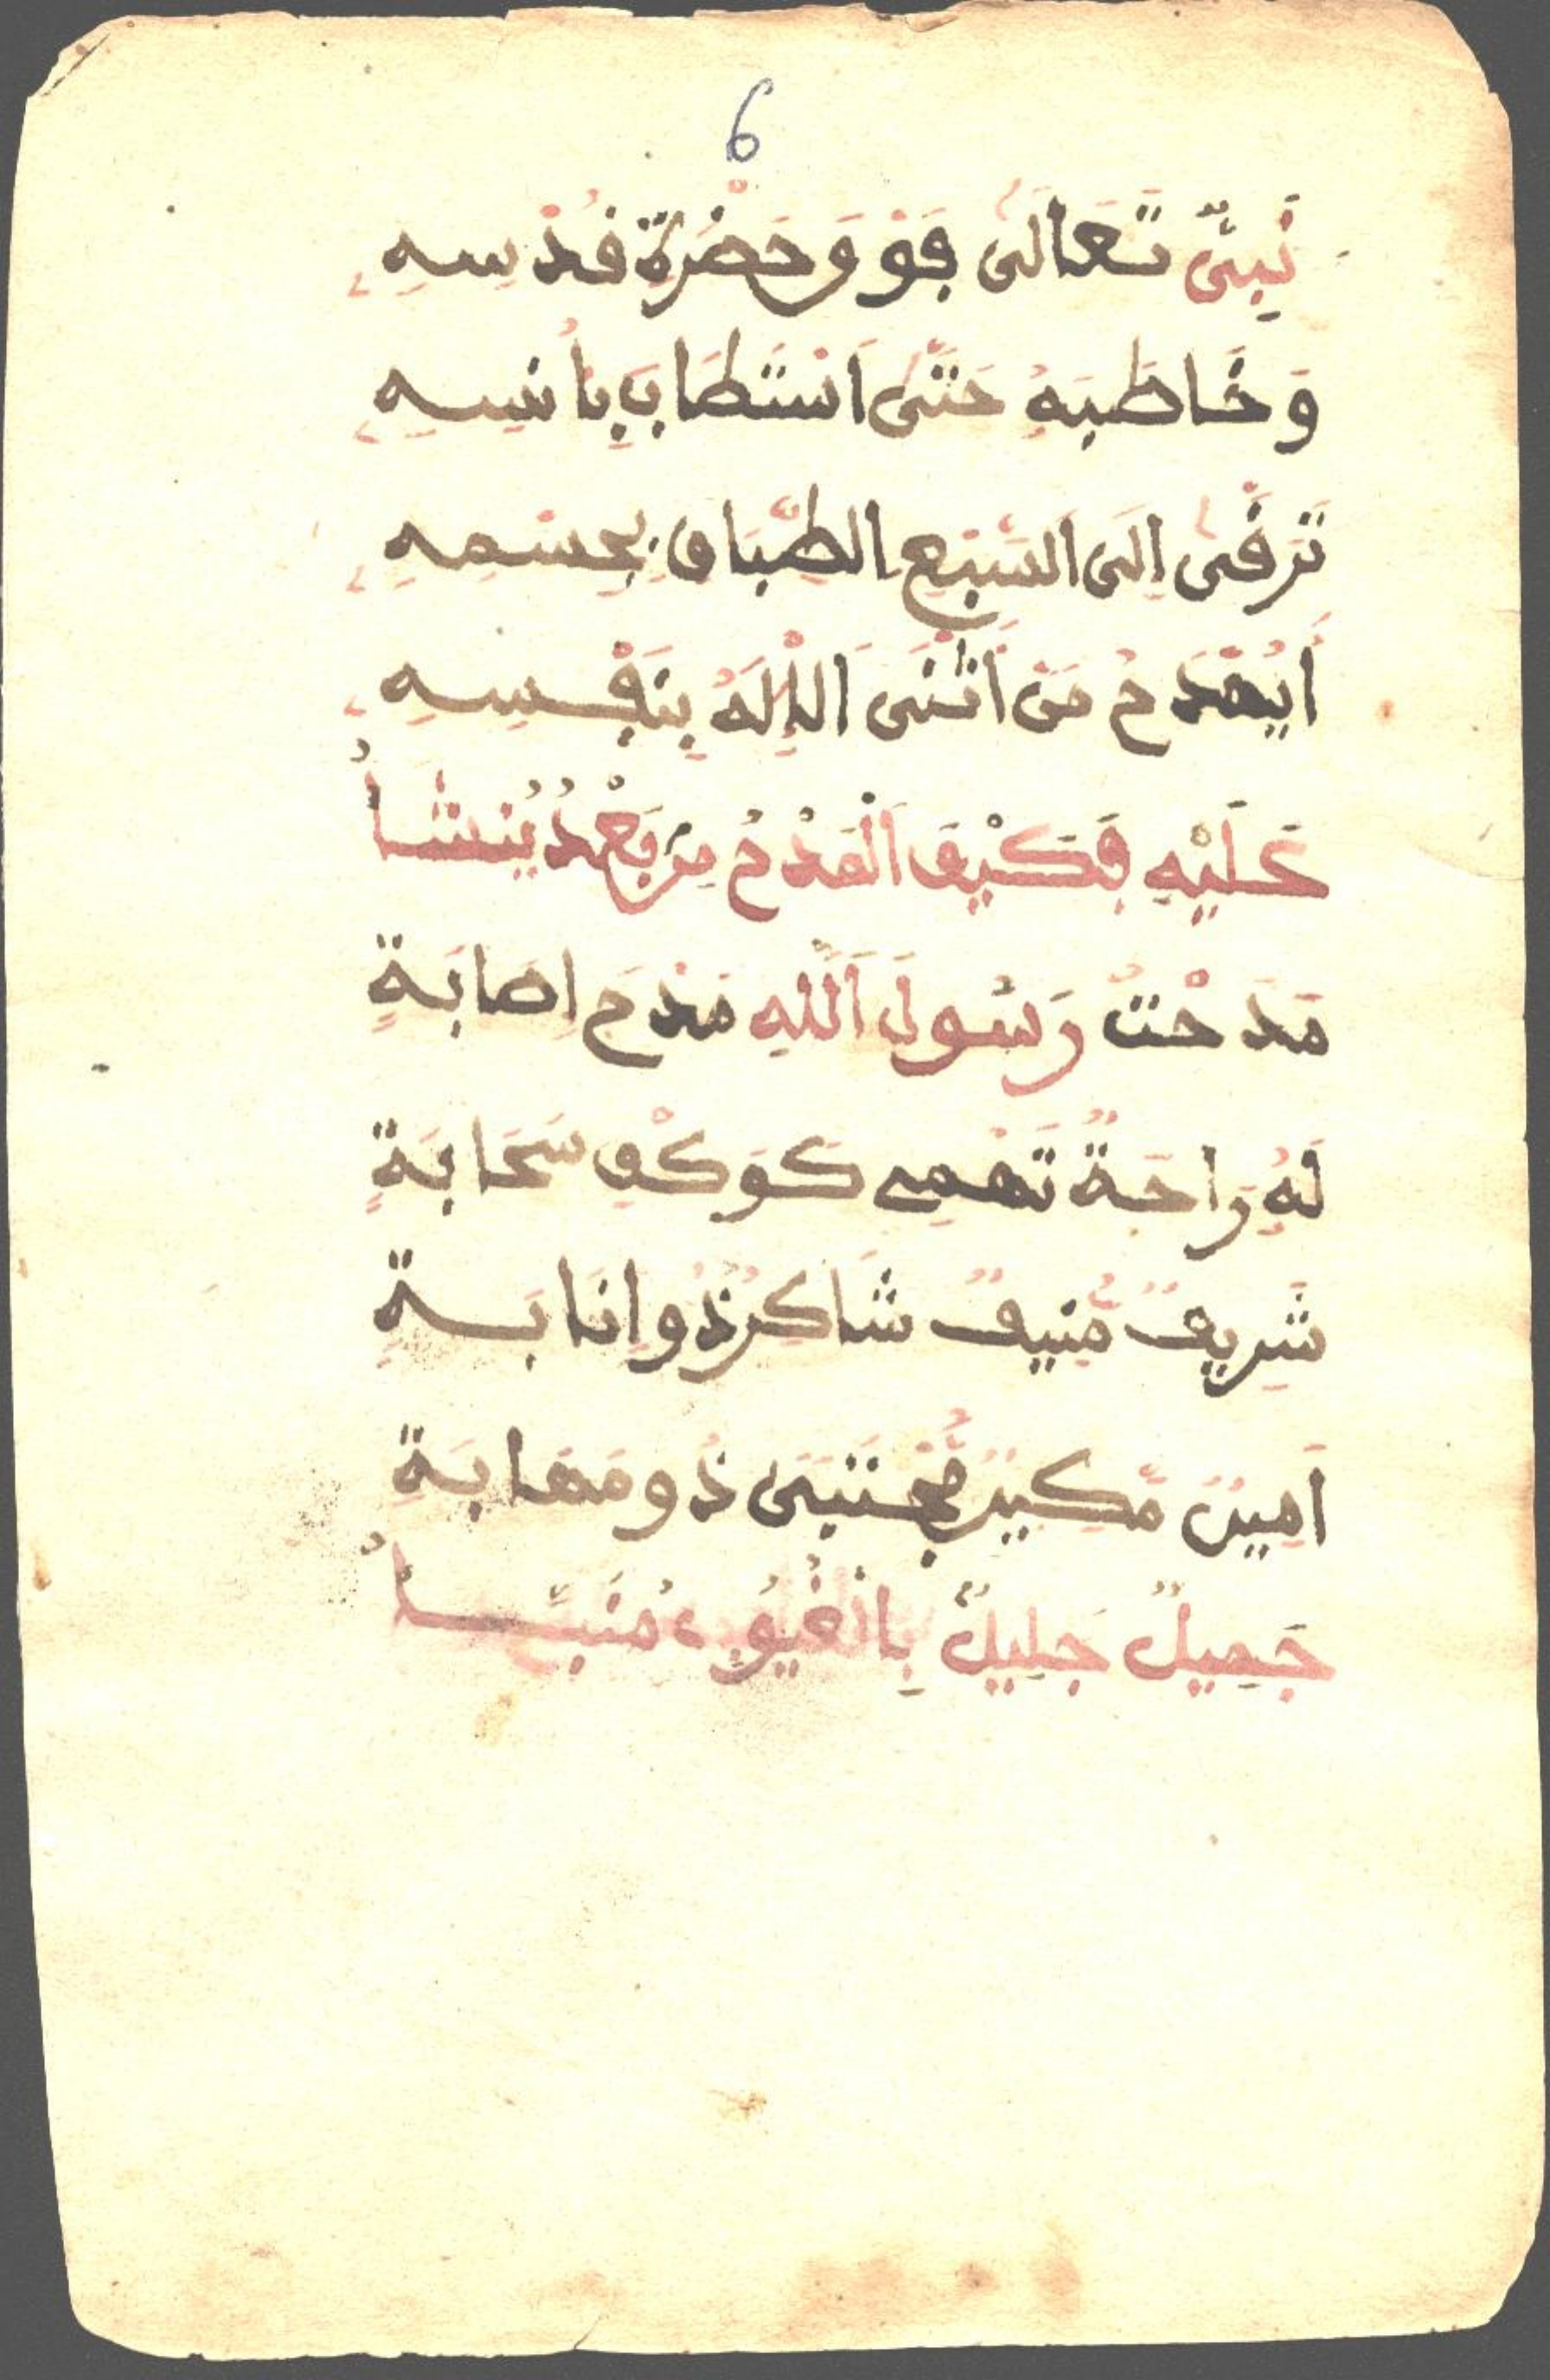 6
نَبِيٌّ تَعَالَى فَوْقَ حَضْرَةِ قُدْسِهِ
وَخَاطَبَهُ حَتَّى اسْتَطَابَ بِأُنْسِهِ
تَرَقَّى إِلَى السَّبْعِ الطِّبَاقِ بِجِسْمِهِ
أَيُمْدَحُ مَنْ أَثْنَى الْإِلَهُ بِنَفْسِهِ
عَلَيْهِ فَكَيْفَ الْمَدْحُ مِن بَعْدُ يُنْشَأُ
مَدَحْتُ رَسُولَ اللَّهِ مَدْحَ إِصَابَةٍ
لَهُ رَاحَةٌ تَهْمِي كَوَكْفِ سَحَابَةٍ
شَرِيفٌ مُّنِيفٌ شَاكِرٌ ذُو إِنَابَةٍ
أَمِينٌ مَّكِينٌ مُّجْتَبَى ذُو مَهَابَةٍ
جَمِيلٌ جَلِيلٌ بِالْغُيُوبِ مُنَبَّأُ